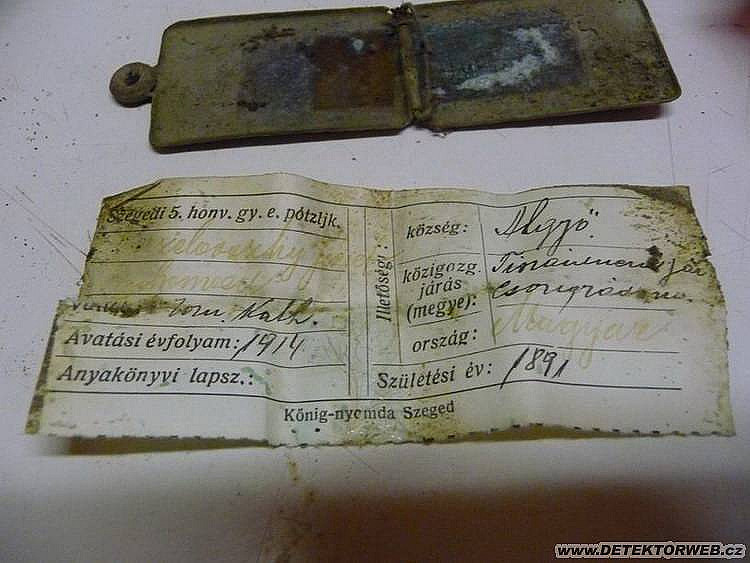 Szegedi 5. honv. gy. e. pótzljk.
róm. Kath.
Avatási évfolyam: 1914
Anyakönyvi lapsz.:
Illetőségi:
község: Algyő.
közigozg.
járás
(megye):
ország: Magyar
Születési év: 1891
König-nyomda Szeged
www.DETEKTORWEB.cz